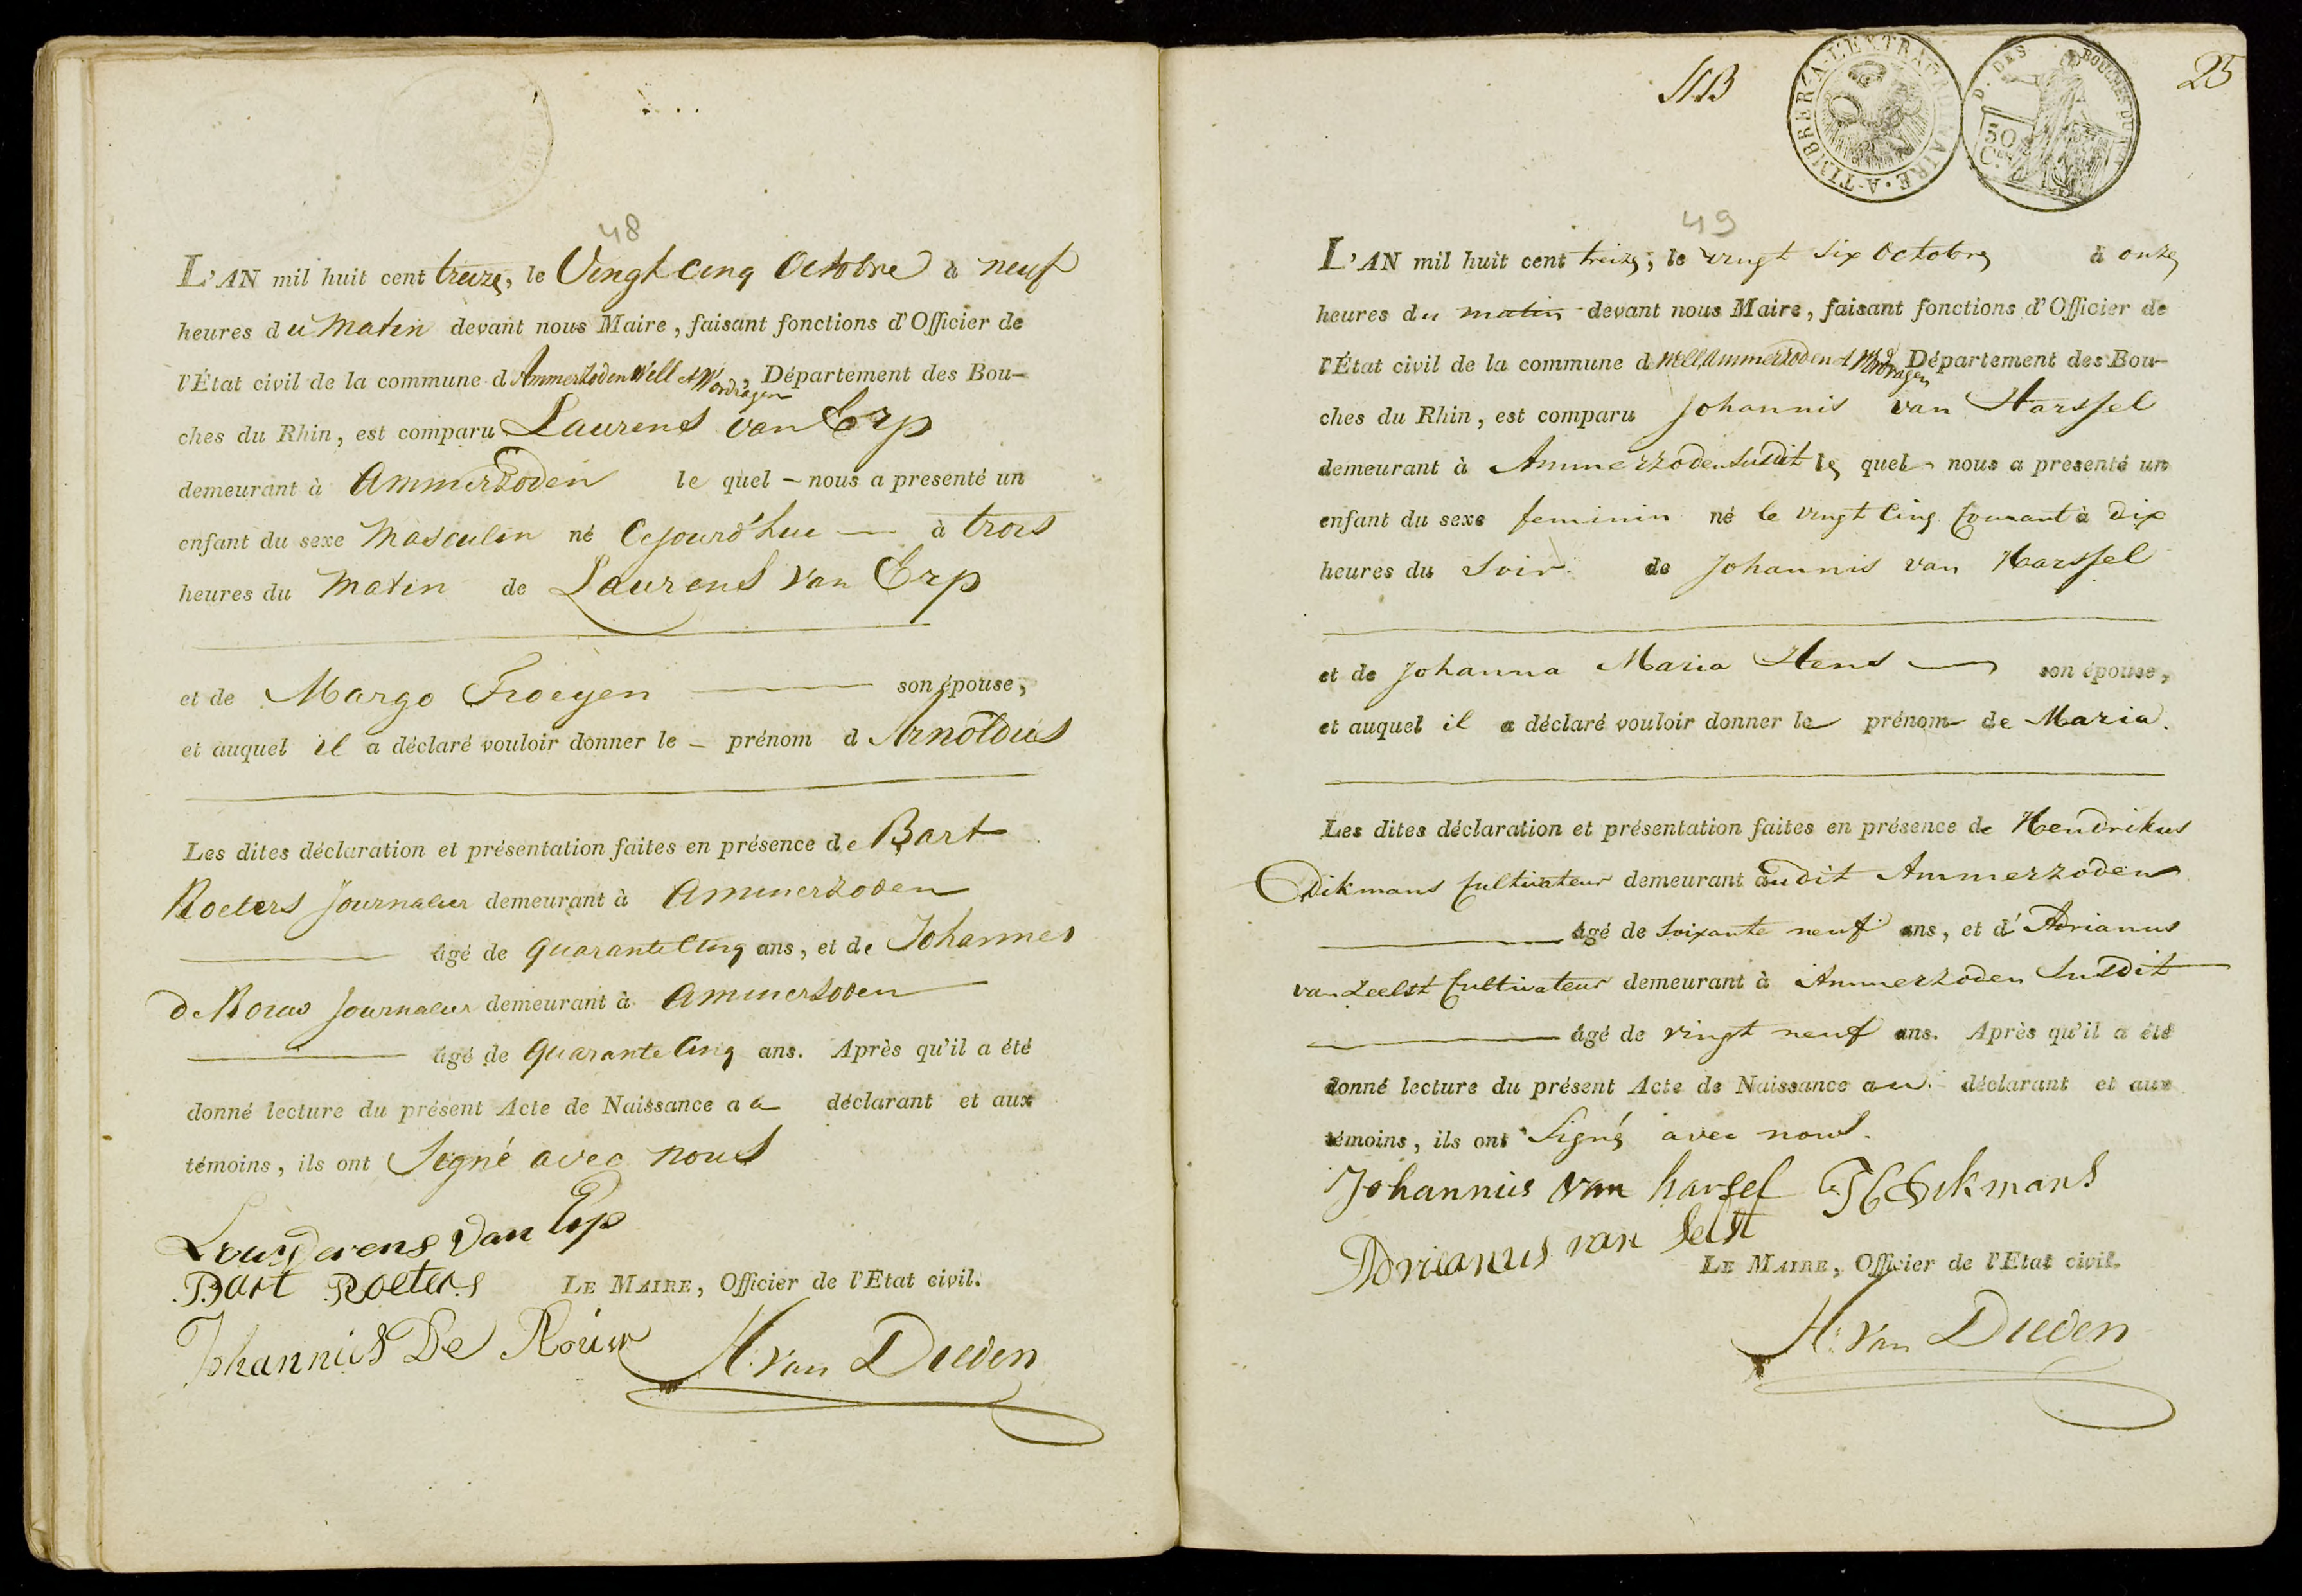 48
L'AN mil huit cent treize, le Vingt Cinq Octobre à neuf
heures du Matin devant nous Maire, faisant fonctions d'Officier de
l'État civil de la commune d Ammerzoden Well et Wordragen, Département des Bou-
ches du Rhin, est comparu Laurens van Erp
demeurant à Ammerzoden le quel - nous a presenté un
enfant du sexe Masculin né Cejourd'hui — à trois
heures du Matin de Laurens van Erp
et de Margo Froeyen — son épouse,
et auquel il a déclaré vouloir donner le - prénom d Arnoldus
Les dites déclaration et présentation faites en présence de Bart
Roeters Journalier demeurant à Ammerzoden
— âgé de Quarante Cinq ans, et de Johannes
de Rouw Journalier demeurant à Ammerzoden
— âgé de Quarante Cinq ans. Après qu'il a été
donné lecture du présent Acte de Naissance au déclarant et aux
témoins, ils ont Signé avec nous
van Erp
Bart Roeters LE MAIRE, Officier de l'Etat civil.
Johannis De Rouw H. van Dieden
NB
A-TIMBRER-A-L'EXTRAORDINAIRE
D. DES BOUCHES DU RHIN
50 C.
25
49
L'AN mil huit cent treize, le vingt Six Octobre à onze
heures du matin devant nous Maire, faisant fonctions d'Officier de
l'État civil de la commune de Well, Ammerzoden et Wordragen Département des Bou-
ches du Rhin, est comparu Johannis van Harssel
demeurant à Ammerzoden susdit le quel - nous a presenté un
enfant du sexe feminin né le vingt Cinq Courant à Dix
heures du Soir de Johannis van Harssel
et de Johanna Maria Hens — son épouse,
et auquel il a déclaré vouloir donner le prénom de Maria.
Les dites déclaration et présentation faites en présence de Hendrikus
Dikmans Cultivateur demeurant audit Ammerzoden
— âgé de Soixante neuf ans, et d'Adrianus
van Zeelst Cultivateur demeurant à Ammerzoden Susdit
— âgé de vingt neuf ans. Après qu'il a été
donné lecture du présent Acte de Naissance au - déclarant et aux
témoins, ils ont Signé avec nous.
Johannis van harsel H Dikmans
Adrianus van Selst
LE MAIRE, Officier de l'Etat civil.
H. van Dieden